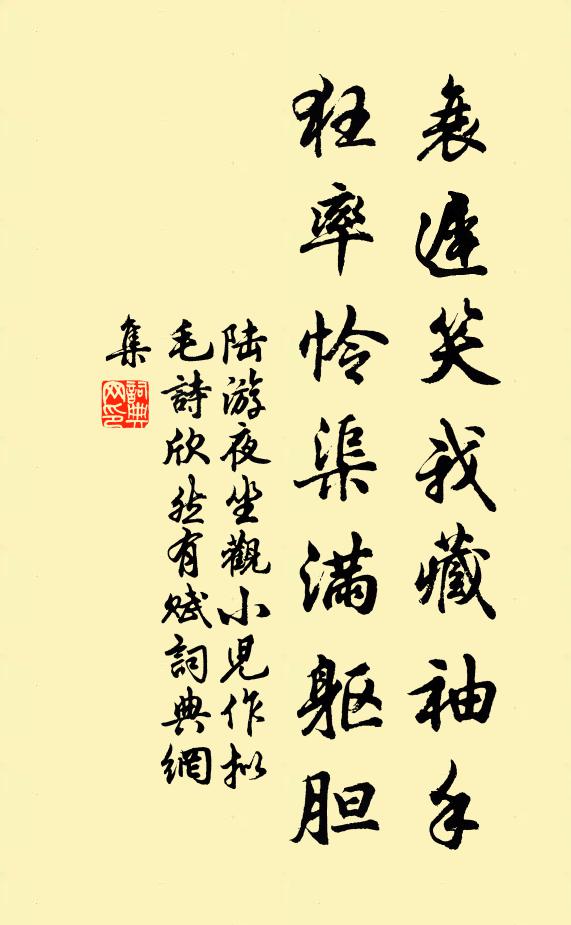 衰遲笑我藏袖手
狂率憐渠满躯胆
陆游夜坐觀小兒作拟
毛詩欣然有赋詞典網
集
詞典
网印